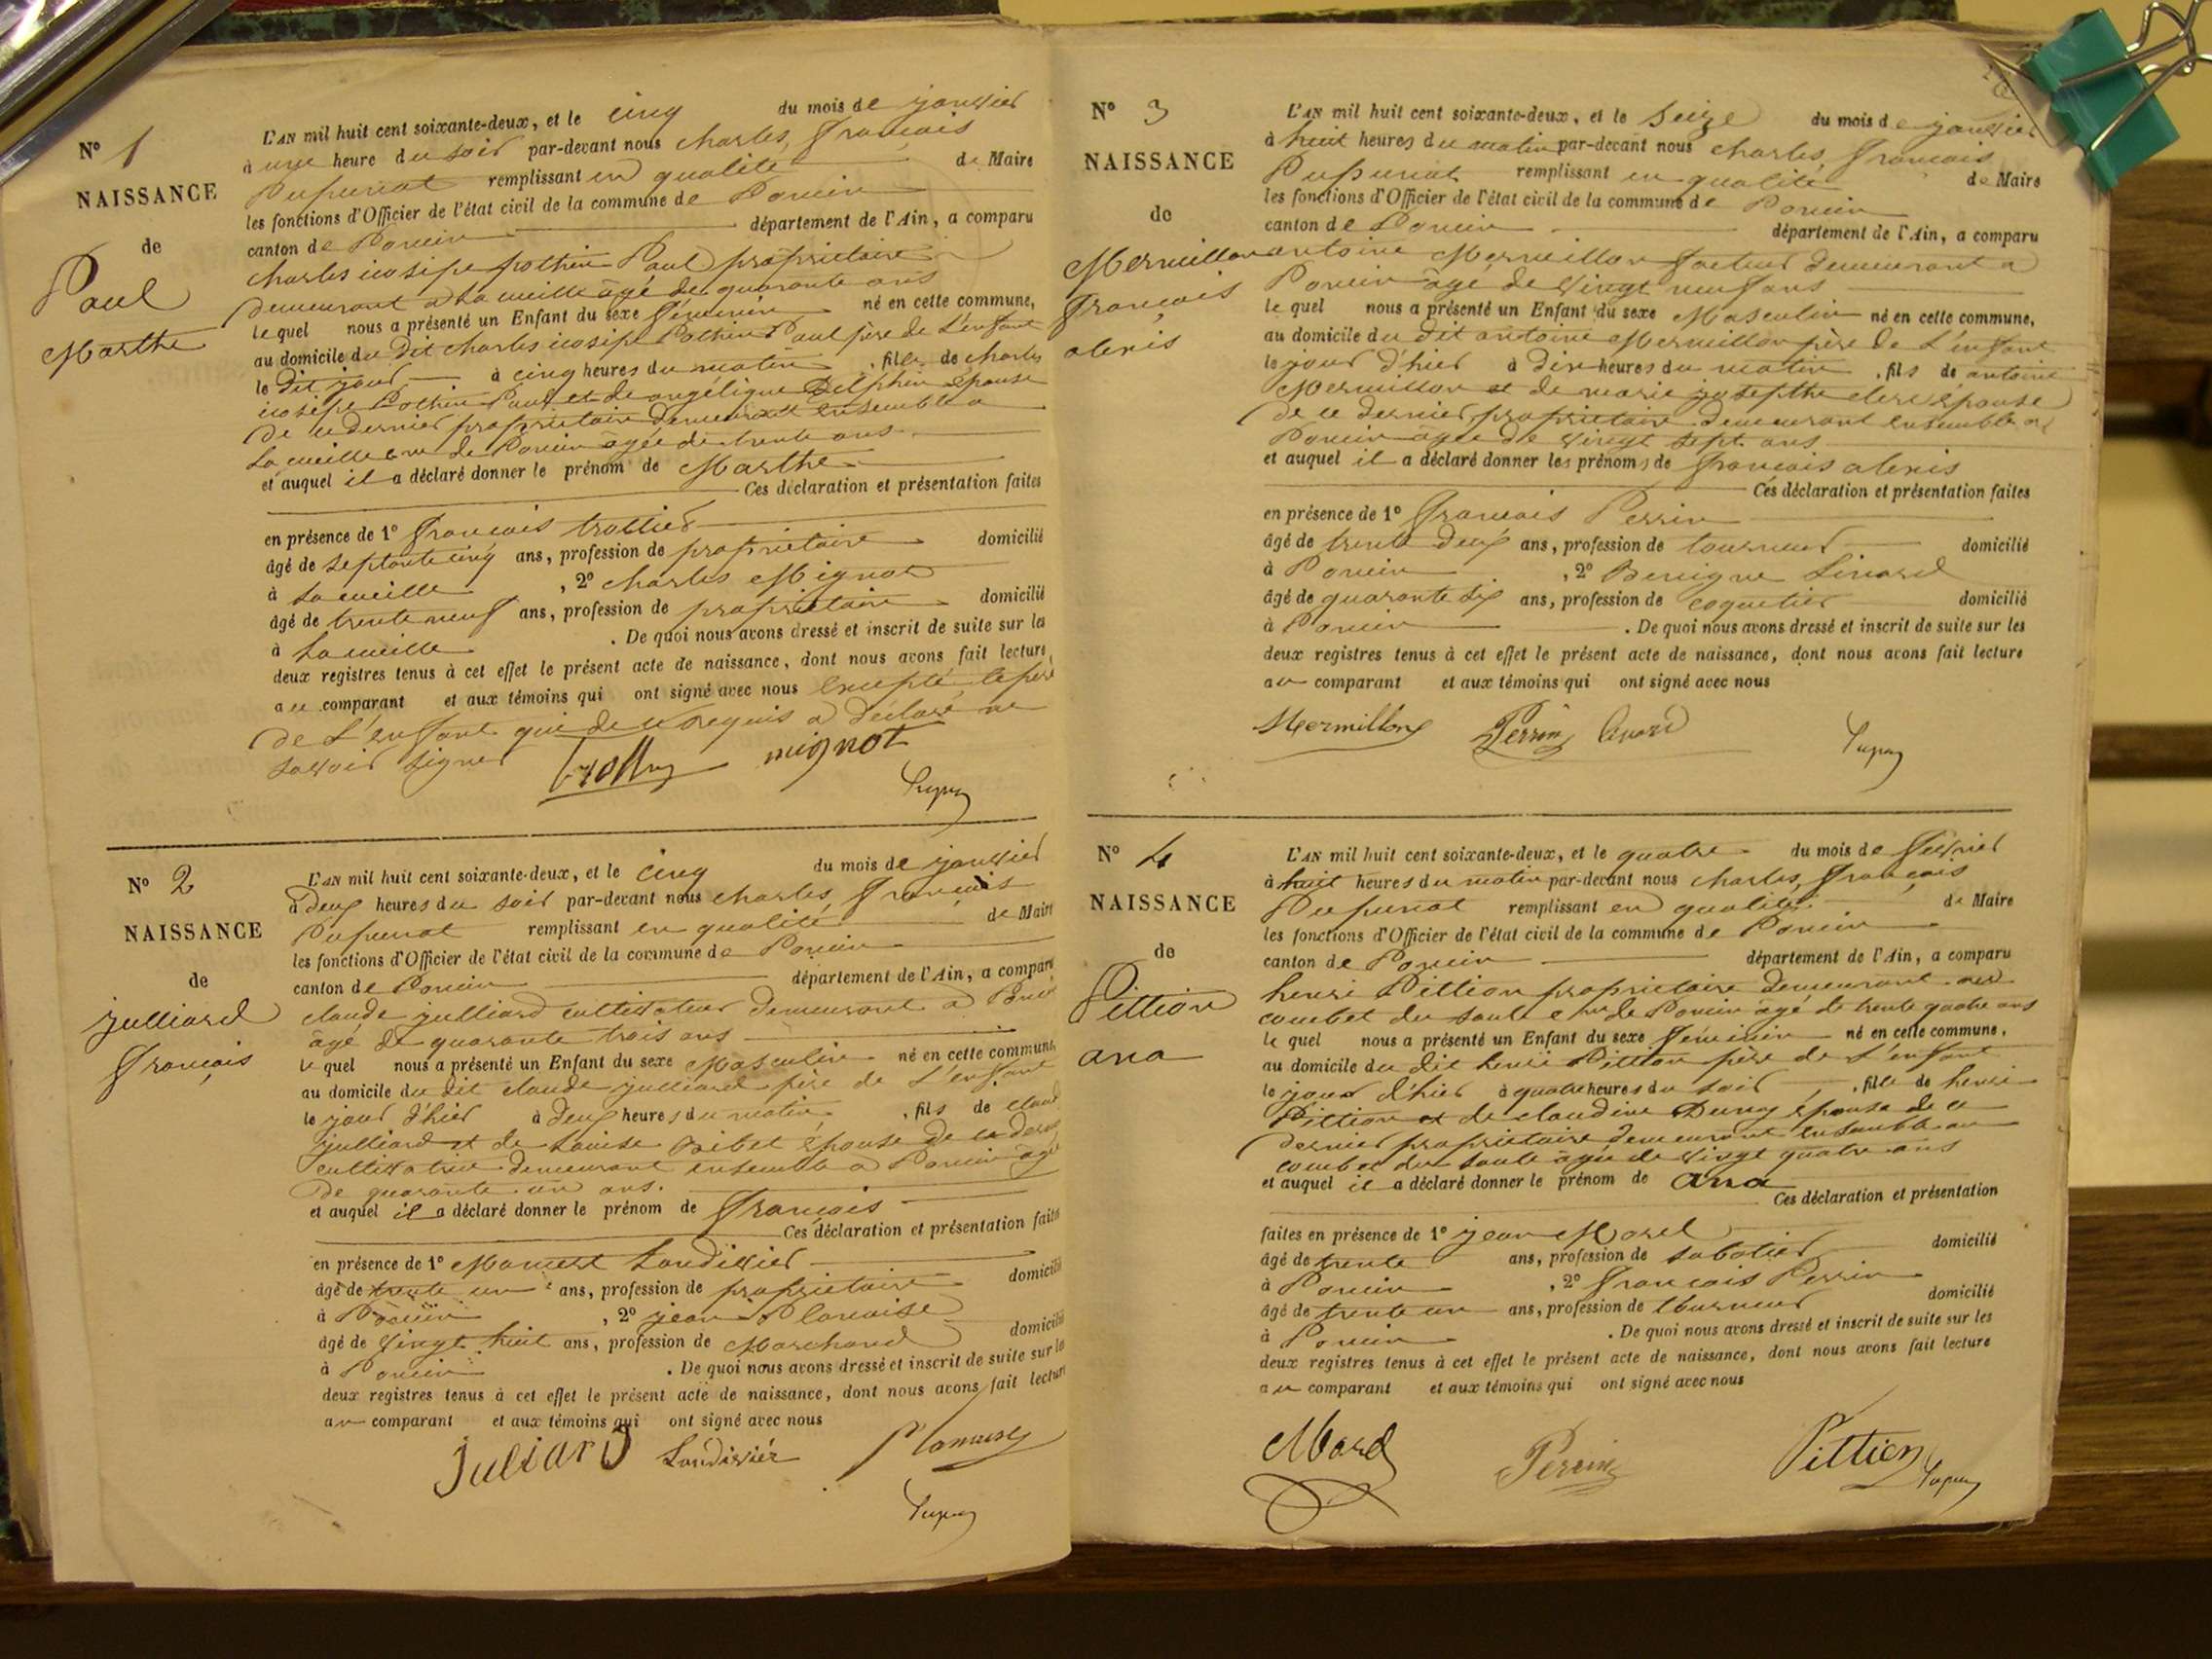 N° 1
NAISSANCE
de
Paul
Marthe
L'AN mil huit cent soixante-deux, et le cinq du mois de janvier
à une heure du soir par-devant nous charles, françois
Pupunat remplissant en qualité de Maire
les fonctions d'Officier de l'état civil de la commune de Poncin
canton de Poncin département de l'Ain, a comparu
charles Paul propriétaire
demeurant a La cueille âgé de quarante ans
le quel nous a présenté un Enfant du sexe féminin né en cette commune,
au domicile du dit charles Paul père de L'enfant
le dit jour à cinq heures du matin, fille de charles
Paul et de angélique Delphin épouse
de ce dernier propriétaire demeurant ensemble a
La cueille cne de Poncin âgée de trente ans.
et auquel il a déclaré donner le prénom de Marthe.
Ces déclaration et présentation faites
en présence de 1° françois trollier
âgé de septante cinq ans, profession de propriétaire domicilié
à La cueille, 2° charles Mignot
âgé de trente neuf ans, profession de propriétaire domicilié
à La cueille. De quoi nous avons dressé et inscrit de suite sur les
deux registres tenus à cet effet le présent acte de naissance, dont nous avons fait lecture
au comparant et aux témoins qui ont signé avec nous Excepté le père
de L'enfant qui de ce requis a déclaré ne
savoir signer
mignot
N° 2
NAISSANCE
de
julliard
françois
L'AN mil huit cent soixante-deux, et le cinq du mois de janvier
à deux heures du soir par-devant nous charles, françois
Pupunat remplissant en qualité de Maire
les fonctions d'Officier de l'état civil de la commune de Poncin
canton de Poncin département de l'Ain, a comparu
claude julliard cultivateur demeurant a Poncin
âgé de quarante trois ans
le quel nous a présenté un Enfant du sexe Masculin né en cette commune,
au domicile du dit claude julliard père de L'enfant
le jour d'hier à deux heures du matin, fils de claude
julliard et de Louise épouse de ce dernier
cultivatrice demeurant ensemble a Poncin âgée
de quarante un ans.
et auquel il a déclaré donner le prénom de françois
Ces déclaration et présentation faites
en présence de 1° Landivier
âgé de trente un ans, profession de propriétaire domicilié
à Poncin, 2° jean Planaise
âgé de vingt huit ans, profession de Marchand domicilié
à Poncin. De quoi nous avons dressé et inscrit de suite sur les
deux registres tenus à cet effet le présent acte de naissance, dont nous avons fait lecture
au comparant et aux témoins qui ont signé avec nous
Juliard Landivier
N° 3
NAISSANCE
de
Mermillon
françois
alexis
L'AN mil huit cent soixante-deux, et le seize du mois de janvier
à huit heures du matin par-devant nous charles, françois
Pupunat remplissant en qualité de Maire
les fonctions d'Officier de l'état civil de la commune de Poncin
canton de Poncin département de l'Ain, a comparu
antoine Mermillon facteur demeurant a
Poncin âgé de vingt neuf ans
le quel nous a présenté un Enfant du sexe Masculin né en cette commune,
au domicile du dit antoine Mermillon père de L'enfant
le jour d'hier à dix heures du matin, fils de antoine
Mermillon et de marie josepthe clerc épouse
de ce dernier, propriétaire demeurant ensemble a
Poncin âgée de vingt sept ans
et auquel il a déclaré donner les prénoms de françois alexis
Ces déclaration et présentation faites
en présence de 1° françois Perrin
âgé de trente deux ans, profession de tourneur domicilié
à Poncin, 2° Benigne Linard
âgé de quarante six ans, profession de coquetier domicilié
à Poncin. De quoi nous avons dressé et inscrit de suite sur les
deux registres tenus à cet effet le présent acte de naissance, dont nous avons fait lecture
au comparant et aux témoins qui ont signé avec nous
Mermillon Perrin
N° 4
NAISSANCE
de
Pittion
ana
L'AN mil huit cent soixante-deux, et le quatre du mois de février
à huit heures du matin par-devant nous charles, françois
Pupunat remplissant en qualité de Maire
les fonctions d'Officier de l'état civil de la commune de Poncin
canton de Poncin département de l'Ain, a comparu
henri Pittion propriétaire demeurant au
combet du saule cne de Poncin âgé de trente quatre ans
le quel nous a présenté un Enfant du sexe féminin né en cette commune,
au domicile du dit henri Pittion père de L'enfant
le jour d'hier à quatre heures du soir, fille de henri
Pittion et de claudine épouse de ce
dernier propriétaire demeurant ensemble au
combet du saule âgée de vingt quatre ans
et auquel il a déclaré donner le prénom de ana
Ces déclaration et présentation
faites en présence de 1° jean Morel
âgé de trente ans, profession de sabotier domicilié
à Poncin, 2° françois Perrin
âgé de trente un ans, profession de tourneur domicilié
à Poncin. De quoi nous avons dressé et inscrit de suite sur les
deux registres tenus à cet effet le présent acte de naissance, dont nous avons fait lecture
au comparant et aux témoins qui ont signé avec nous
Morel Perrin Pittion